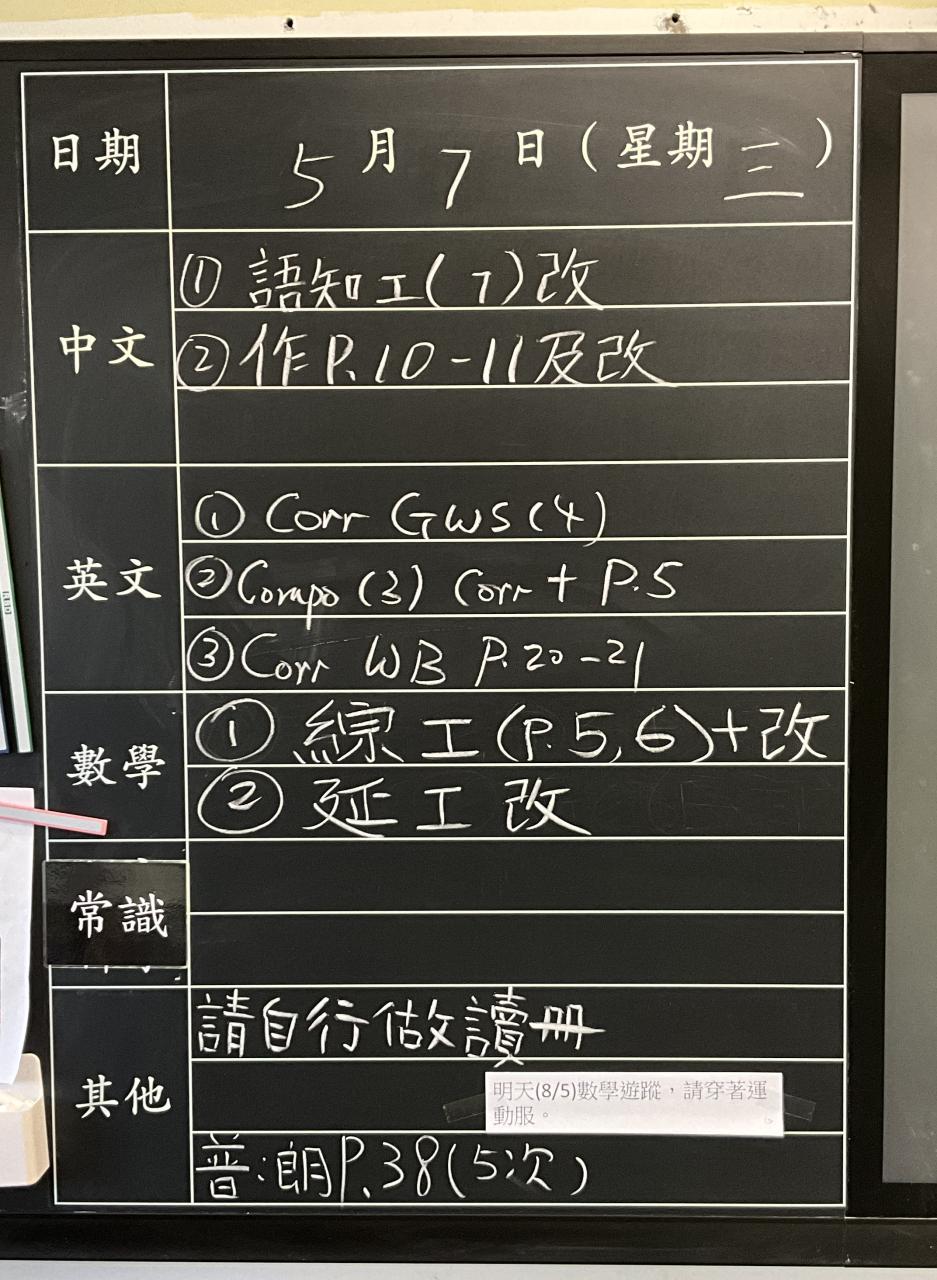 日期 5月7日(星期三)
中文 ① 語知工(7)改
② 作P.10-11及改
英文 ① Corr GWS(4)
② Compo (3) Corr + P.5
③ Corr WB P.20-21
數學 ① 綜工(P.5,6)+改
② 延工改
常識
其他 請自行做讀冊
明天(8/5)數學遊蹤，請穿著運
動服。
普:朗P.38(5次)